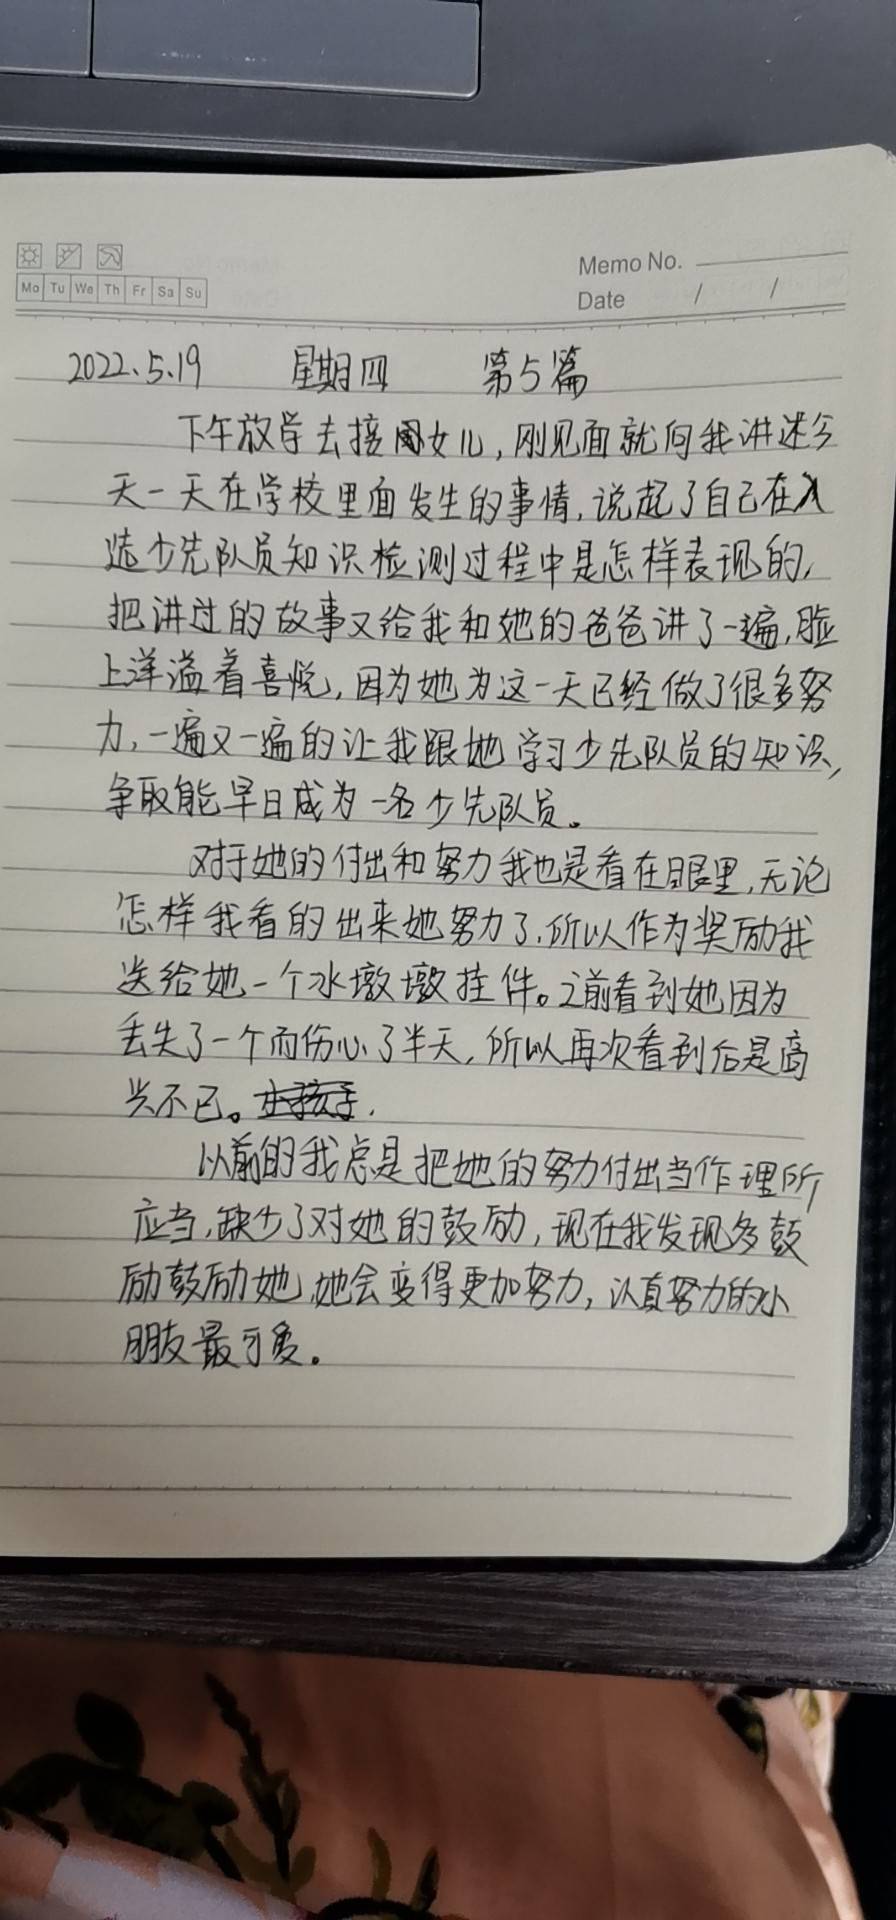 Memo No.
Mo Tu We Th Fr Sa Su
Date / /
2022.5.19 星期四 第5篇
下午放学去接女儿,刚见面就向我讲述今
天一天在学校里面发生的事情,说起了自己在入
选少先队员知识检测过程中是怎样表现的,
把讲过的故事又给我和她的爸爸讲了一遍,脸
上洋溢着喜悦,因为她为这一天已经做了很多努
力,一遍又一遍的让我跟她学习少先队员的知识,
争取能早日成为一名少先队员。
对于她的付出和努力我也是看在眼里,无论
怎样我看的出来她努力了,所以作为奖励我
送给她一个冰墩墩挂件。之前看到她因为
丢失了一个而伤心了半天,所以再次看到后是高
兴不已。
以前的我总是把她的努力付出当作理所
应当,缺少了对她的鼓励,现在我发现多鼓
励鼓励她,她会变得更加努力,认真努力的小
朋友最可爱。